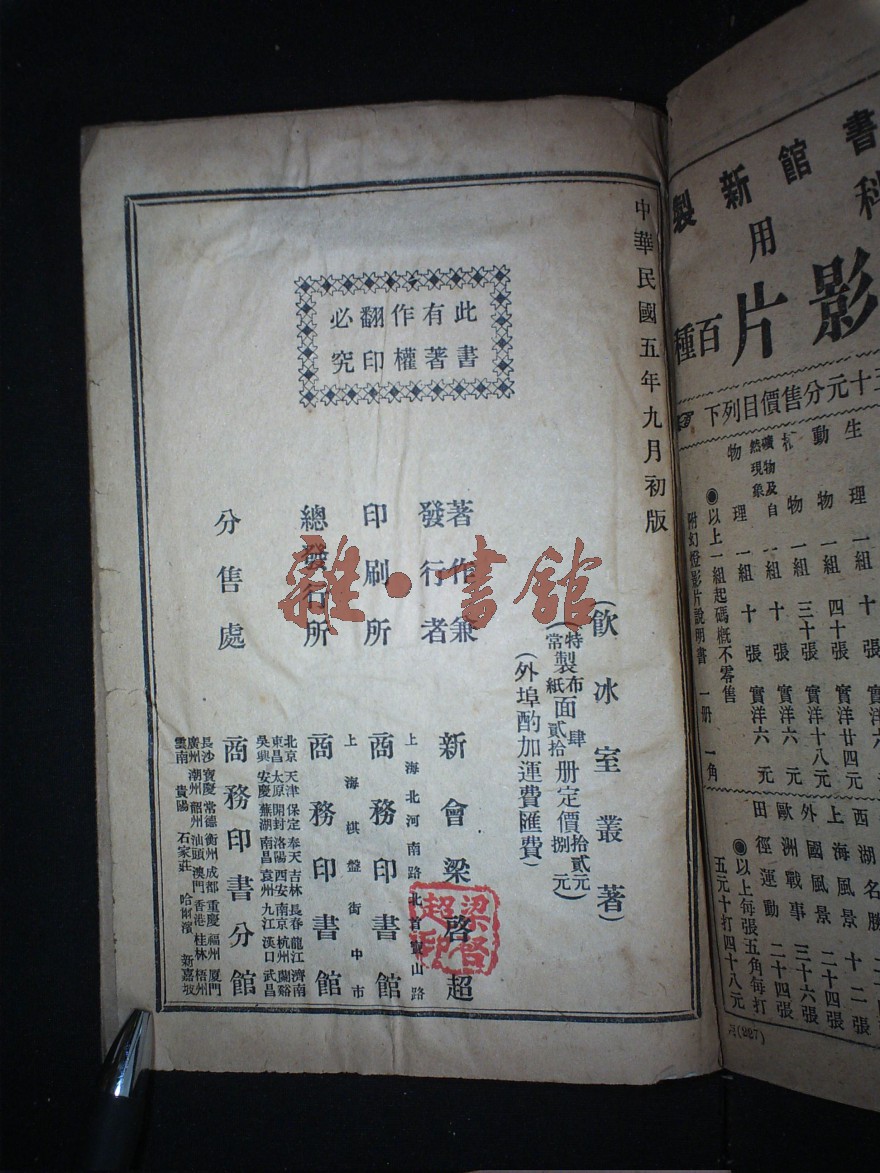 中華民國五年九月初版
此書
有著
作權
翻印
必究
(飲冰室叢著)
(特製布面肆册定價拾貳元
常紙貳拾 捌元)
(外埠酌加運費匯費)
著作兼
發行者
新會梁啓超
梁啓超印
印刷所
上海北河南路北首寶山路
商務印書館
總發行所
上海棋盤街中市
商務印書館
分售處
北京 天津 保定 奉天 吉林 長春 龍江 濟南
東昌 太原 開封 洛陽 西安 南京 杭州 蘭谿
吳興 安慶 蕪湖 南昌 袁州 九江 漢口 武昌
商務印書分館
長沙 寶慶 常德 衡州 成都 重慶 福州 厦門
廣州 潮州 韶州 汕頭 澳門 香港 桂林 梧州
雲南 貴陽 石家莊 哈爾濱 新嘉坡
雜·書館
書館新製
科
用
影片百種
十元分售價目列下
生理 一組 十張 實洋
動物 一組 四十張 實洋廿四元
物 一組 三十張 實洋十八元
礦物及自然現象 一組 十張 實洋六元
物理 一組 十張 實洋六元
◉以上一組起碼概不零售
附幻燈影片說明書 一册 一角
西湖名勝 十二張
上海風景 二十四張
外國風景 三十六張
歐洲戰事 二十四張
田徑運動 二十張
◉以上每張五角每打
五元十打四十八元
丙(227)